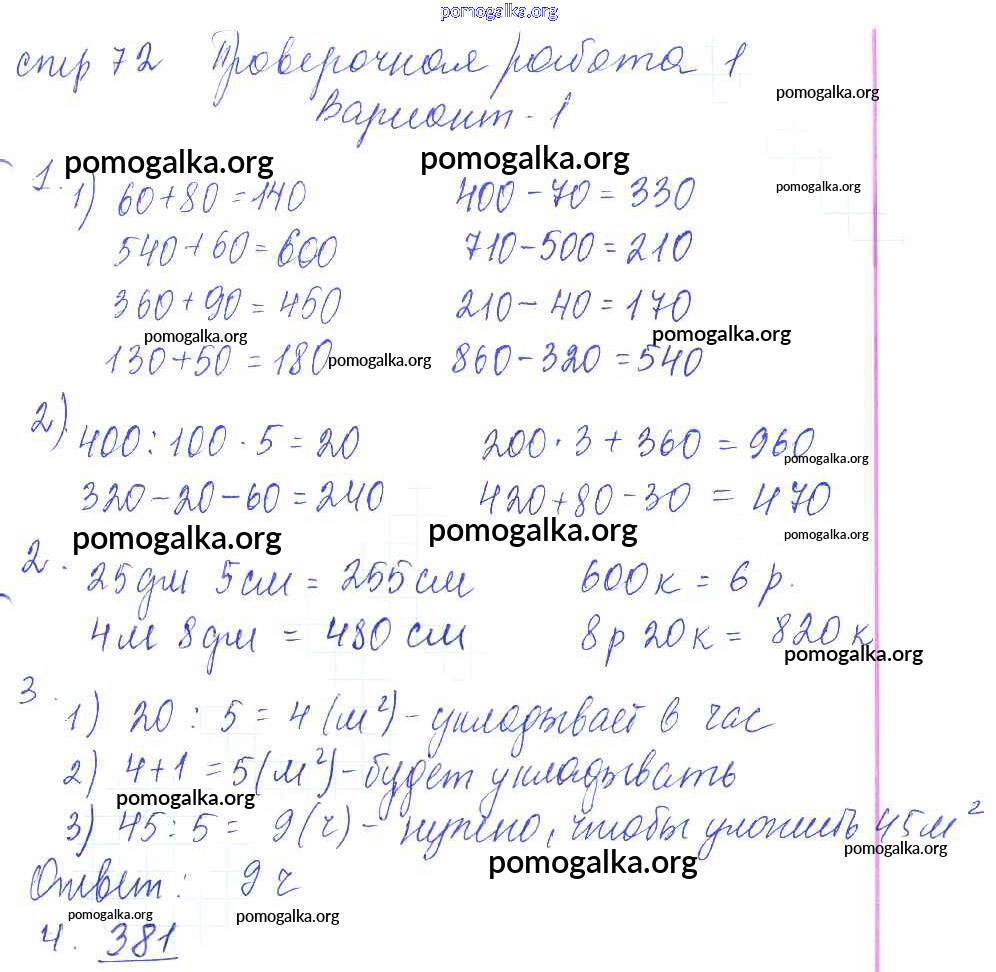 pomogalka.org
стр 72 Проверочная работа 1
pomogalka.org
Вариант - 1
pomogalka.org pomogalka.org
pomogalka.org
1. 1) 60+80=140 400-70=330
540+60=600 710-500=210
360+90=450 210-40=170
pomogalka.org pomogalka.org
130+50=180 860-320=540
pomogalka.org
2). 400:100·5=20 200·3+360=960
pomogalka.org
320-20-60=240 420+80-30=470
pomogalka.org pomogalka.org pomogalka.org
2. 25дм 5см = 255см 600к = 6 р.
4м 8дм = 480 см 8р 20к = 820к
pomogalka.org
3. 1) 20 : 5 = 4 (м²) - укладывает в час
2) 4+1 =5(м²)-будет укладывать
pomogalka.org
3) 45:5 = 9(ч) - нужно, чтобы уложить 45м²
pomogalka.org pomogalka.org
Ответ: 9 ч
pomogalka.org pomogalka.org
4. 381